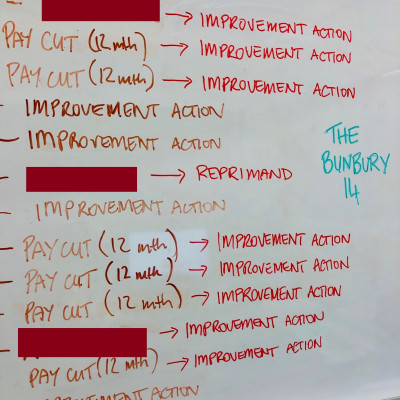 → IMPROVEMENT ACTION
PAY CUT (12 mth) → IMPROVEMENT ACTION
PAY CUT (12 mth) → IMPROVEMENT ACTION
IMPROVEMENT ACTION
- IMPROVEMENT ACTION
- → REPRIMAND
IMPROVEMENT ACTION
- PAY CUT (12 mth) → IMPROVEMENT ACTION
- PAY CUT (12 mth) → IMPROVEMENT ACTION
- PAY CUT (12 mth) → IMPROVEMENT ACTION
- → IMPROVEMENT ACTION
PAY CUT (12 mth) → IMPROVEMENT ACTION
ACTION
THE
BUNBURY
14